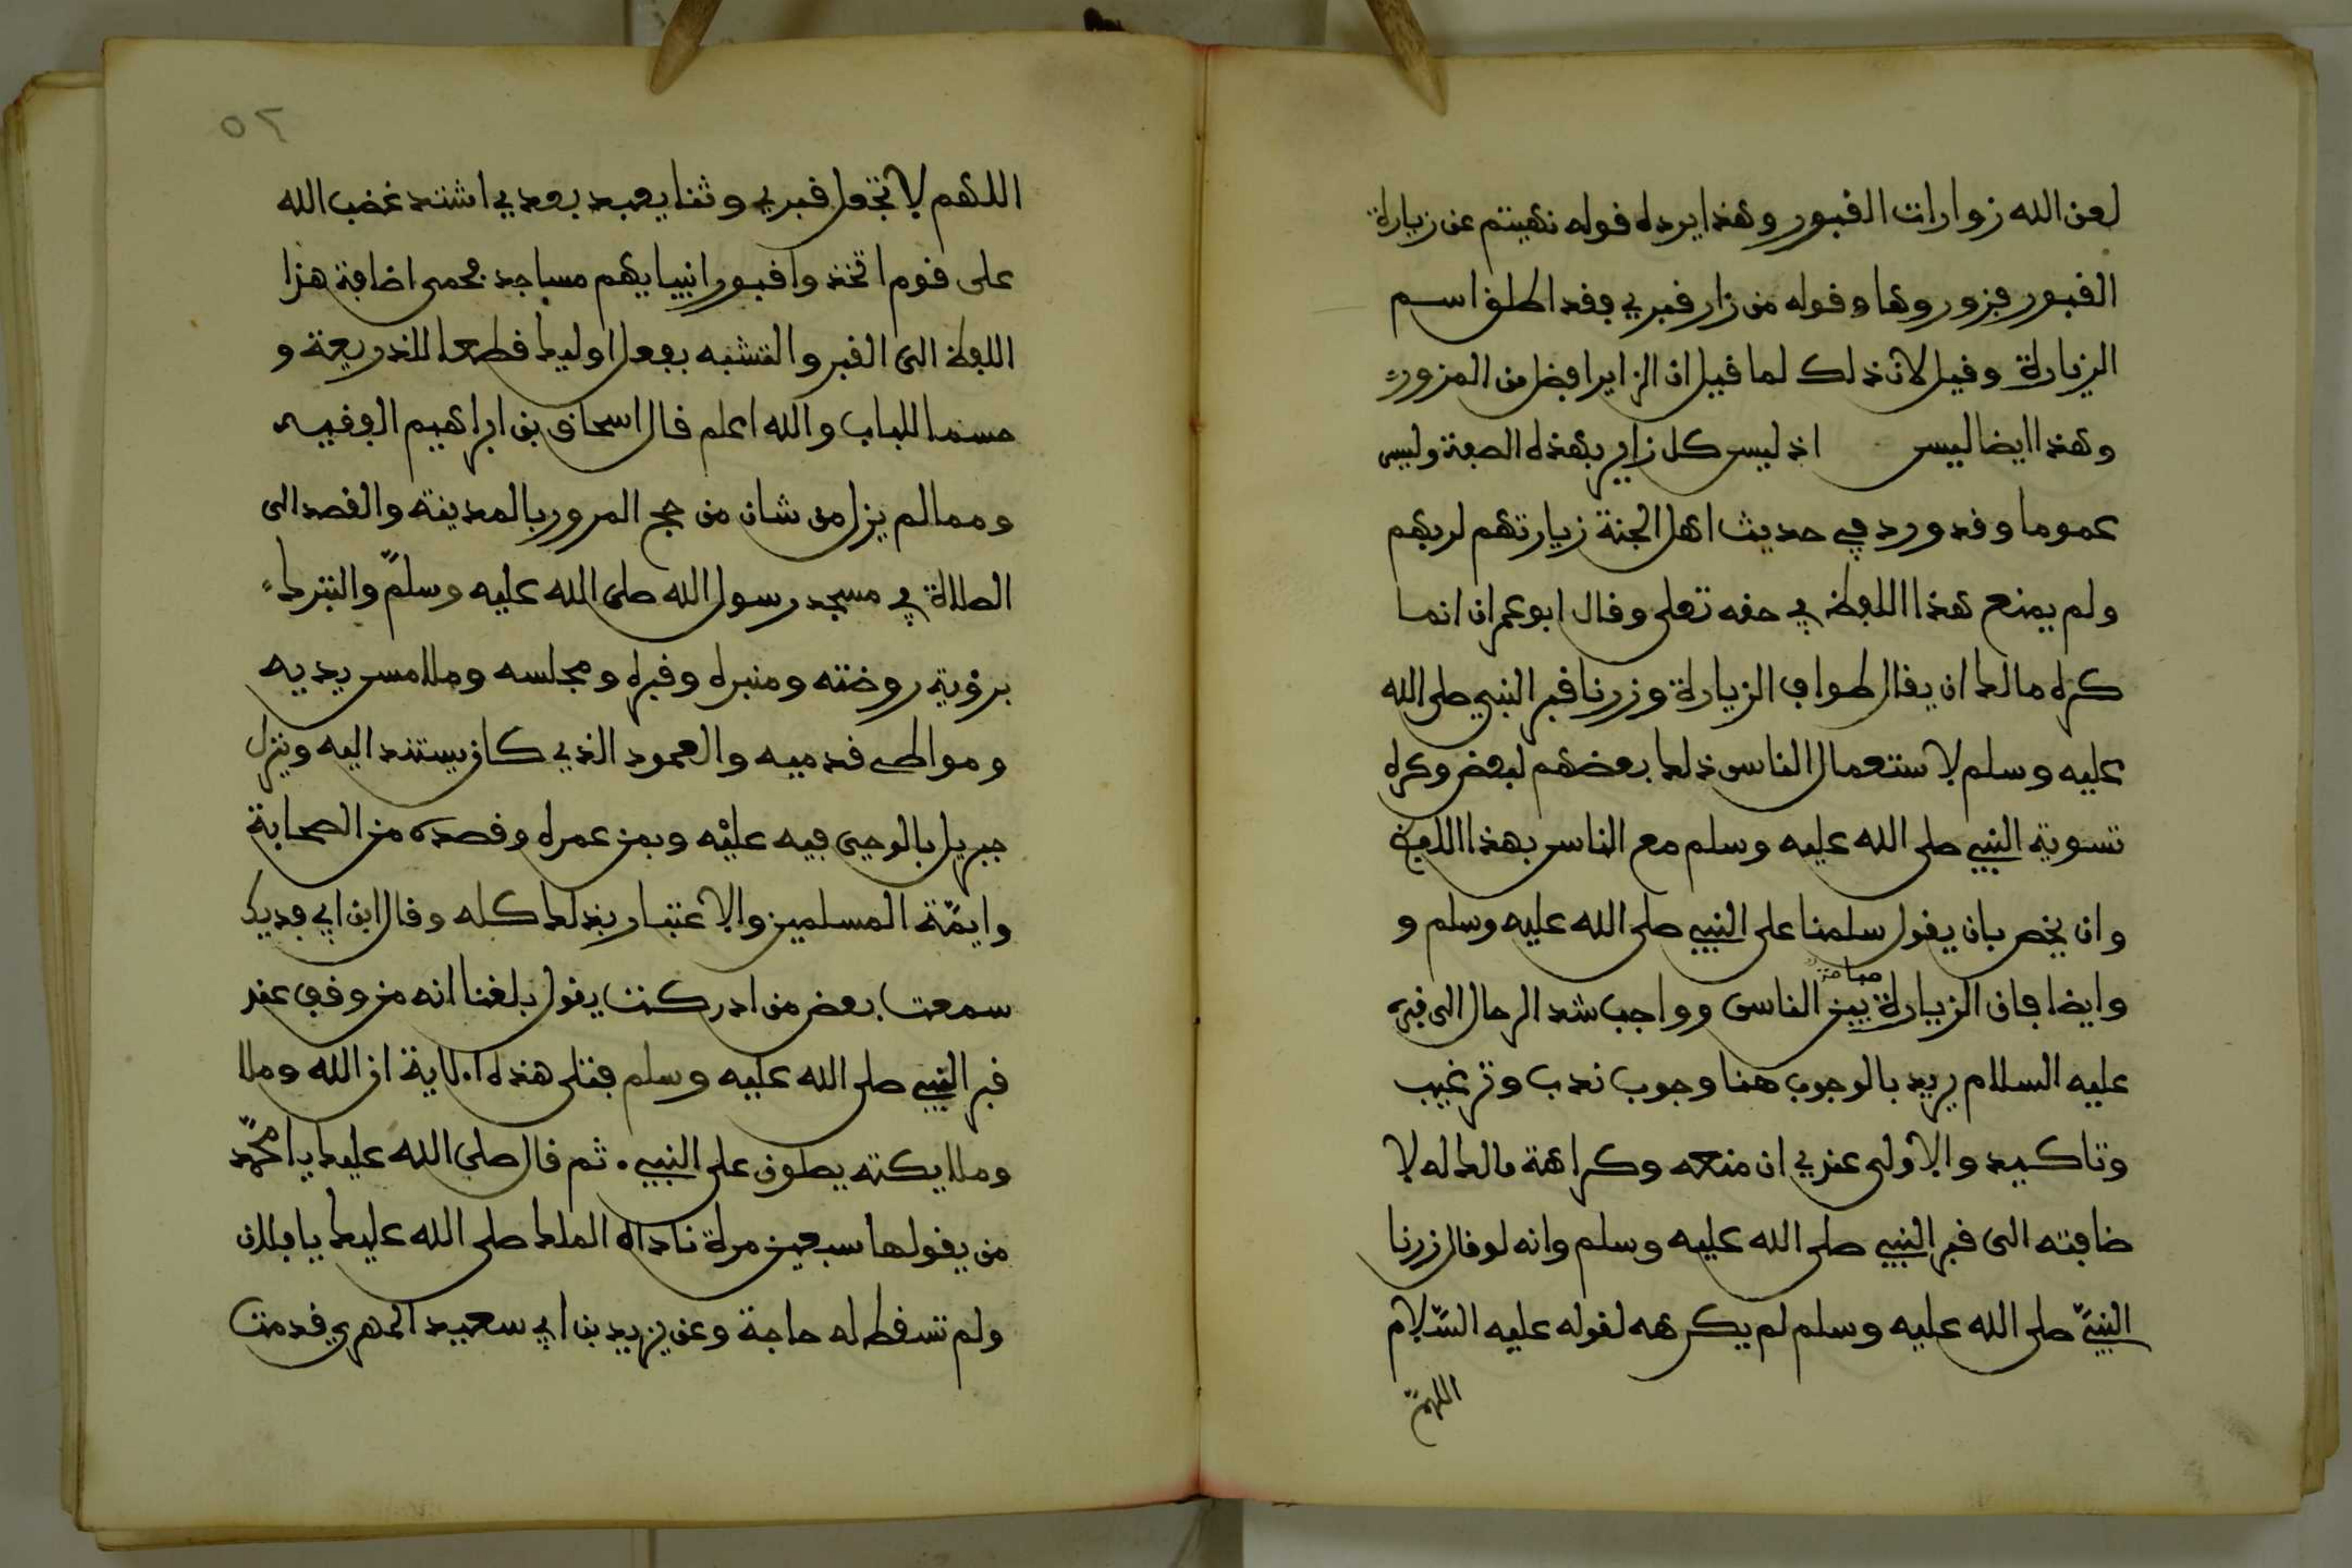 لعن الله زوارات القبور وهذا يرده قوله نهيتم عن زيارة
القبور فزوروها وقوله من زار قبري فقد اطلق اسم
الزيارة وقيل لان ذلك لما قيل ان الزاير افضل من المزور
وهذا ايضا ليس اذ ليس كل زاير بهذه الصفة وليس
عموما وقد ورد في حديث اهل الجنة زيارتهم لربهم
ولم يمنع هذا اللفظ في حقه تعلى وقال ابو عمران انما
كره مالك ان يقال طواف الزيارة وزرنا قبر النبي صلى الله
عليه وسلم لاستعمال الناس ذلك بعضهم لبعض وكره
تسوية النبي صلى الله عليه وسلم مع الناس بهذا اللفظ
وان يخص بان يقول سلمنا على النبي صلى الله عليه وسلم و
وايضا فان الزيارة مباحة بين الناس وواجب شد الرحال الى قبره
عليه السلام يريد بالوجوب هنا وجوب ندب وترغيب
وتاكيد والاولى عندي ان منعه وكراهة مالك له لا
ضافته الى قبر النبي صلى الله عليه وسلم وانه لو قال زرنا
النبي صلى الله عليه وسلم لم يكرهه لقوله عليه السّلام
اللهمّ
٥٢
اللهم لا تجعل قبري وثنا يعبد بعدي اشتد غضب الله
على قوم اتخذوا قبور انبيايهم مساجد فحمى اضافة هذا
اللفظ الى القبر والتشبه بفعل اوليك قطعا للذريعة و
حسما للباب والله اعلم قال اسحاق بن ابراهيم الفقيه
ومما لم يزل من شان من حج المرور بالمدينة والقصد الى
الصلاة في مسجد رسول الله صلى الله عليه وسلمّ والتبرك
برؤية روضته ومنبره وقبره ومجلسه وملامس يديه
ومواطئ قدميه والعمود الذي كان يستند اليه وينزل
جبريل بالوحي فيه عليْه وبمن عمره وقصده من الصحابة
وايمّة المسلمين والاعتبار بذلك كله وقال ابن ابي فديك
سمعت بعض من ادركت يقول بلغنا انه من وقف عند
قبر النبي صلى الله عليه وسلم فتلى هذه الاية ان الله وملا
وملايكته يصلون على النبي. ثم قال صلى الله عليك يا محمّد
من يقولها سبعين مرة ناداه الملك صلى الله عليك يا فلان
ولم تسقط له حاجة وعن يزيد بن ابي سعيد المهري قدمت